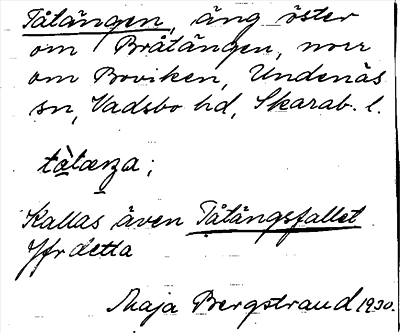 Tåtängen, äng öster
om Bråtängen, norr
om Boviken, Undenäs
sn, Vadsbo hd, Skarab. l.
tåtæŋa;
Kallas även Tåtängsfallet
Jfr detta
Maja Bergstrand 1930.